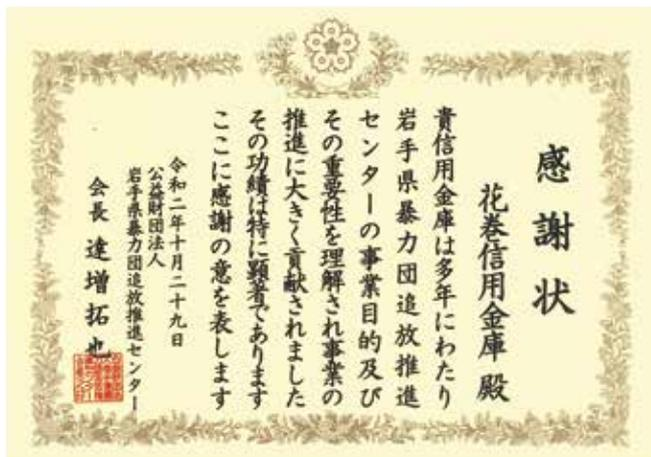 感謝状
花巻信用金庫 殿
貴信用金庫は多年にわたり
岩手県暴力団追放推進
センターの事業目的及び
その重要性を理解され事業の
推進に大きく貢献されました
その功績は特に顕著であります
ここに感謝の意を表します
令和二年十月二十九日
公益財団法人
岩手県暴力団追放推進センター
会長 達増拓也